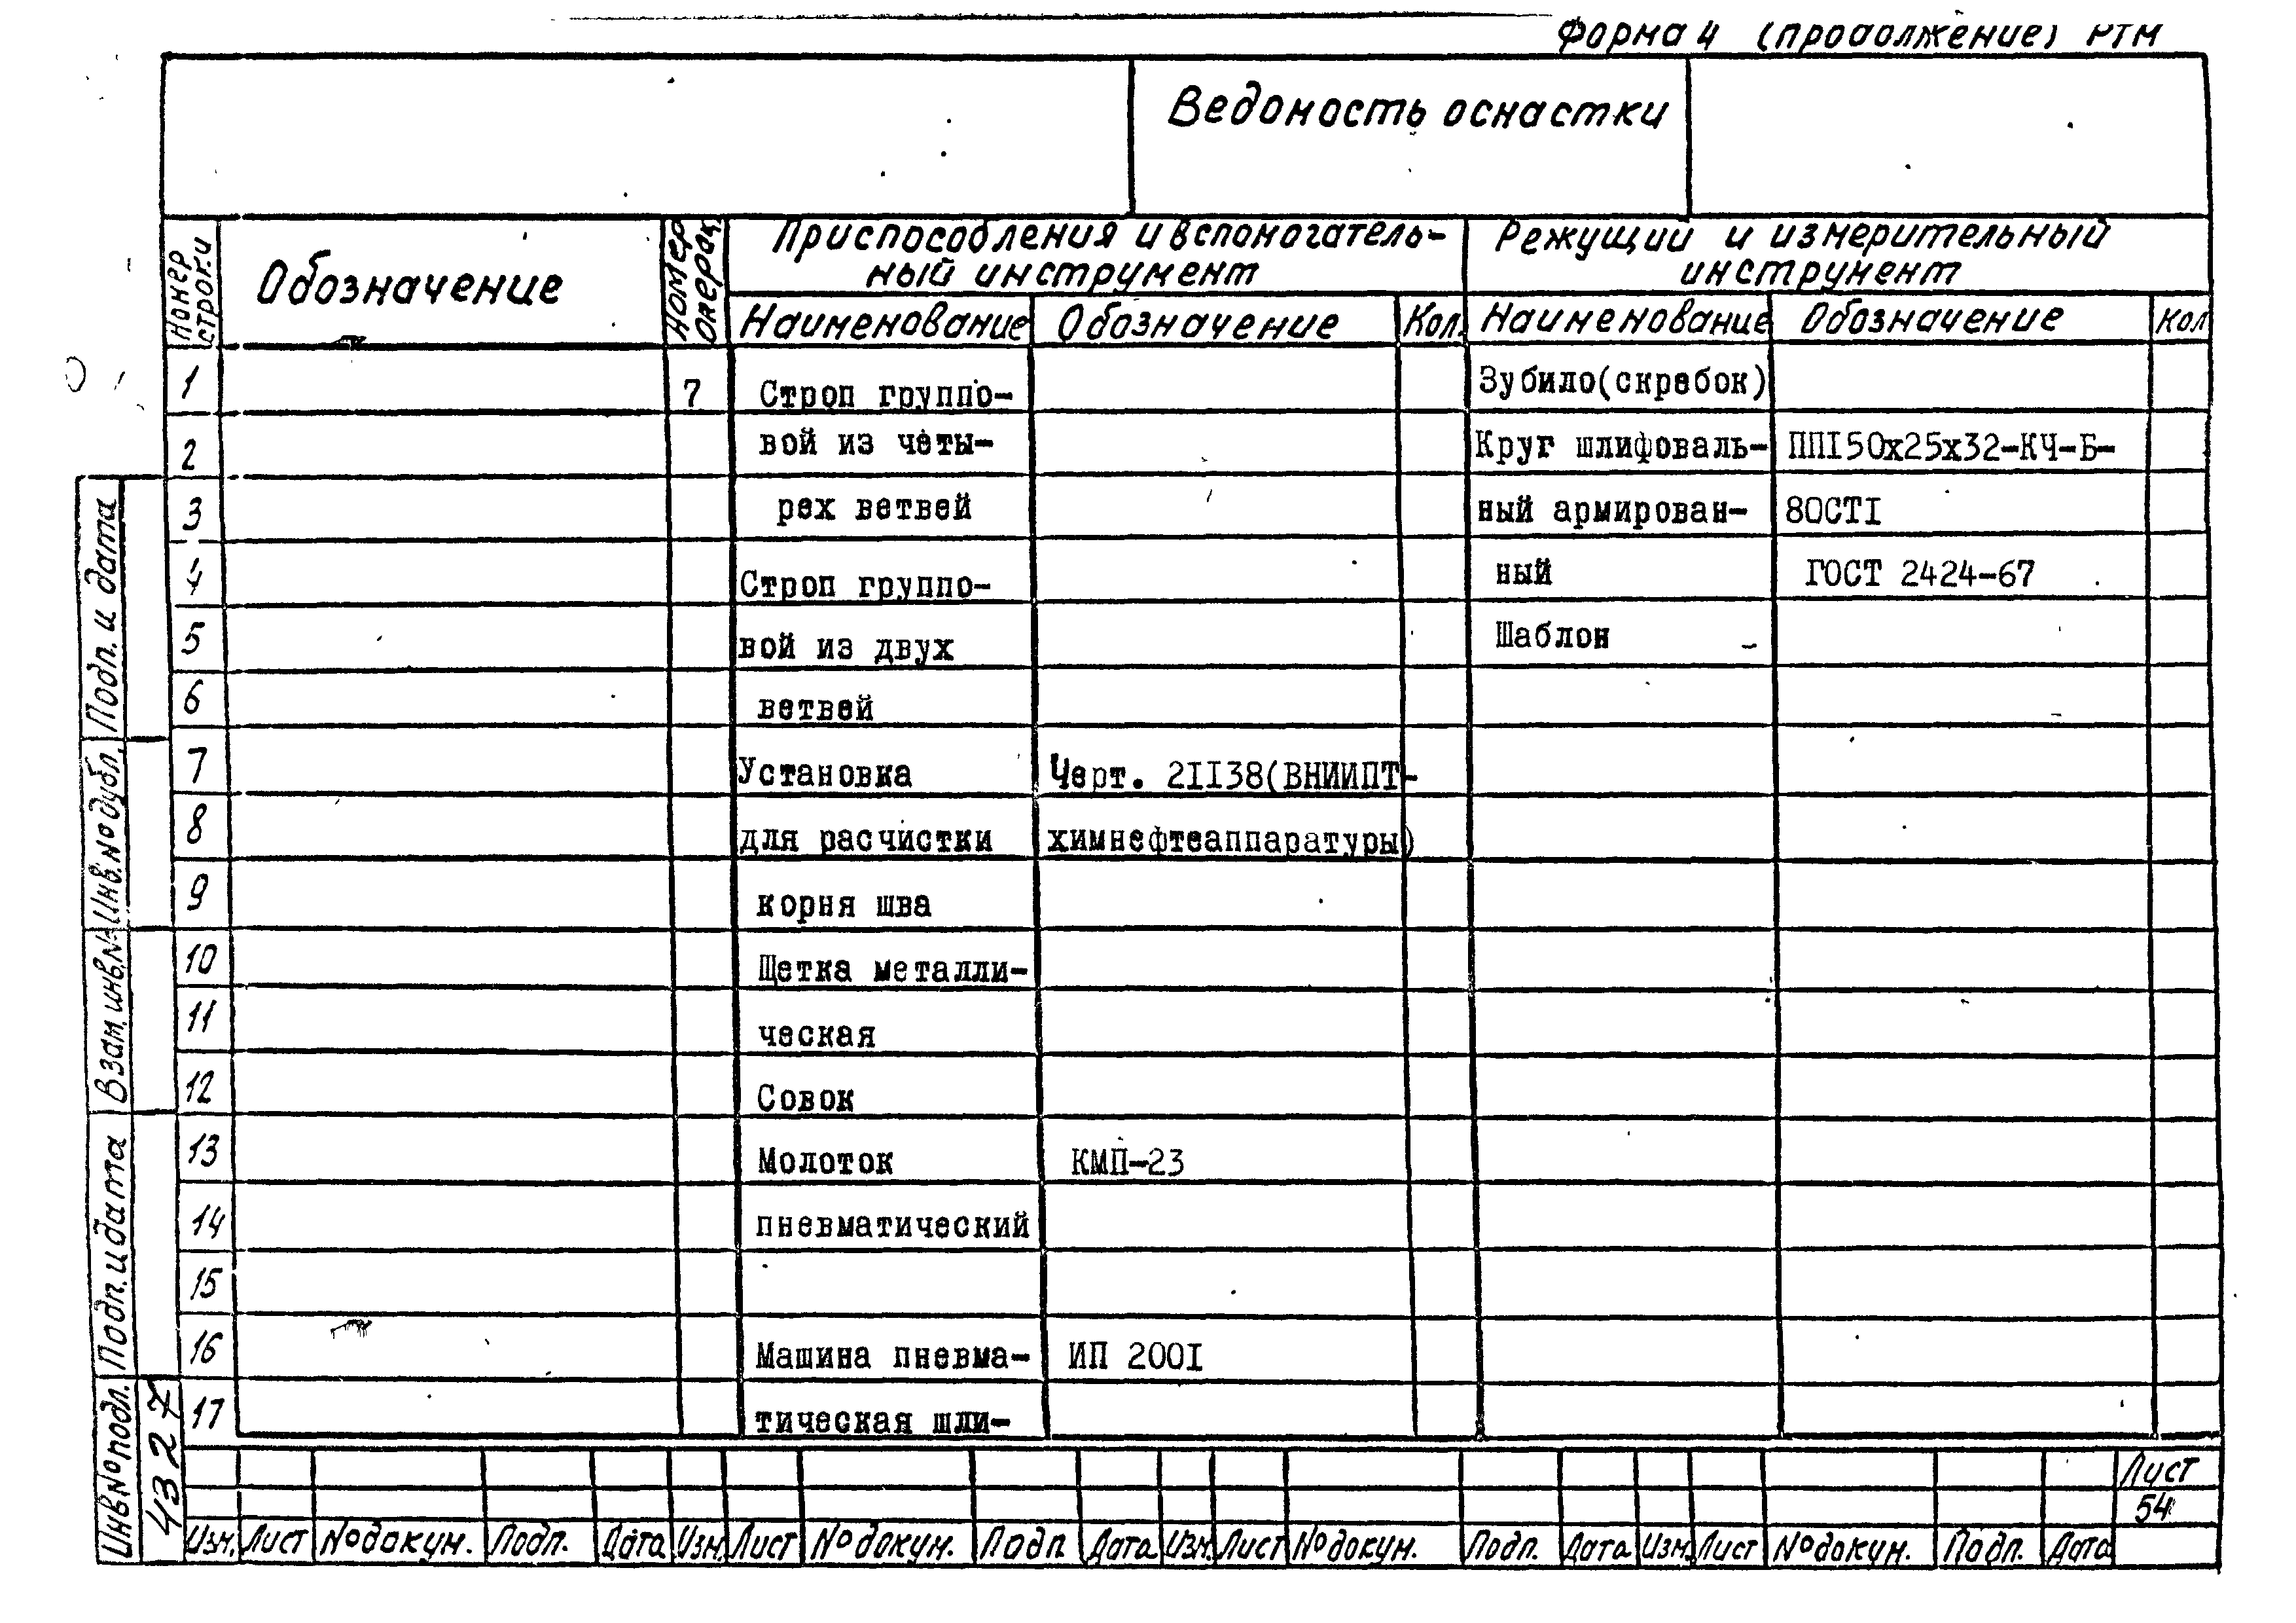 Форма 4 (продолжение) РТМ
Ведомость оснастки
Номер строки
Обозначение
Номер операц.
Приспособления и вспомогатель-
ный инструмент
Режущий и измерительный
инструмент
Наименование Обозначение Кол. Наименование Обозначение Кол
1 7 Строп группо- Зубило(скребок)
2 вой из четы- Круг шлифоваль- ПП150х25х32-КЧ-Б-
3 рех ветвей ный армирован- 80СТ1
4 Строп группо- ный ГОСТ 2424-67
5 вой из двух Шаблон -
6 ветвей
7 Установка Черт. 21138(ВНИИПТ-
8 для расчистки химнефтеаппаратуры)
9 корня шва
10 Щетка металли-
11 ческая
12 Совок
13 Молоток КМП-23
14 пневматический
15
16 Машина пневма- ИП 2001
17 тическая шли-
Подп. и дата
Инв.№дубл.
Взам.инв.№
Подп. и дата
Инв№подл.
4327
Лист
54
Изм. Лист №докум. Подп. Дата Изм. Лист №докум. Подп Дата Изм. Лист №докум. Подп. Дата Изм. Лист №докум. Подп. Дата